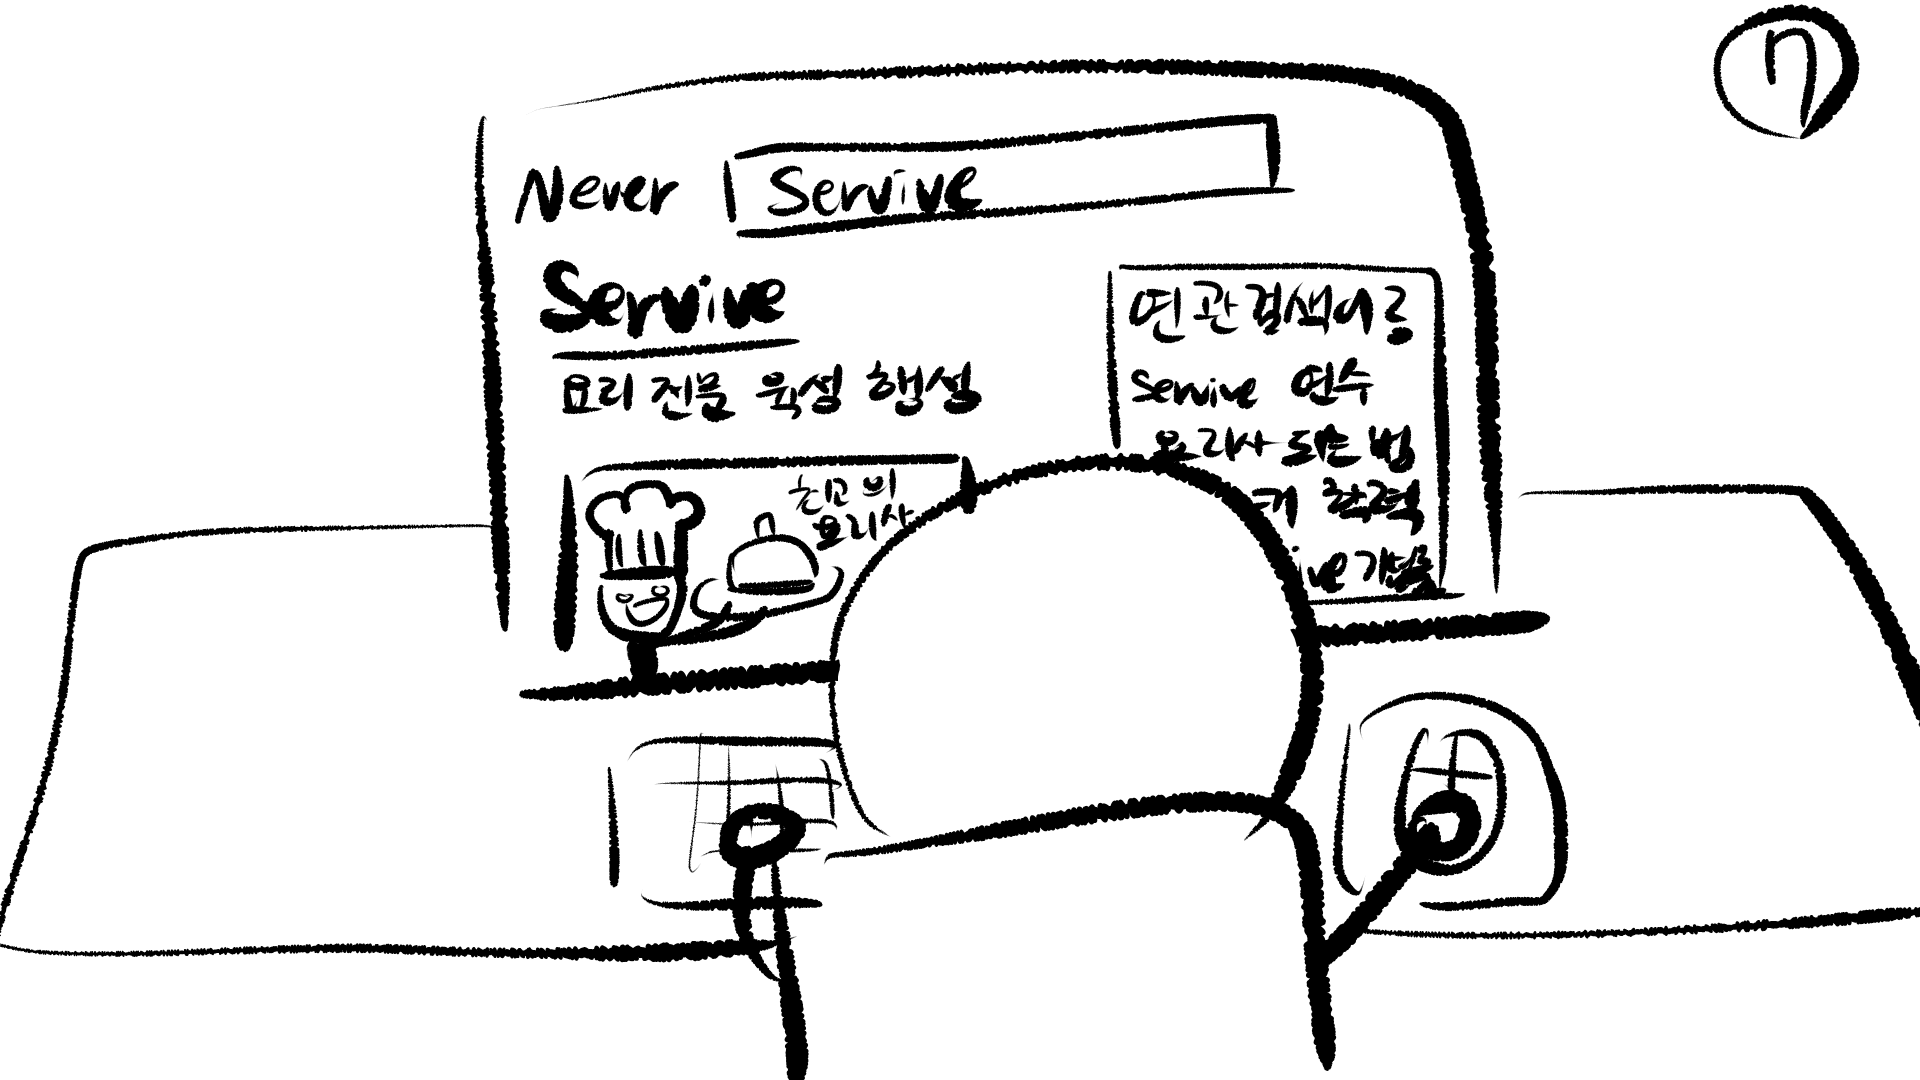 7
Never Servive
Servive
요리 전문 육성 행성
최고의
요리사
연관검색어
servive 연수
요리사 되는 법